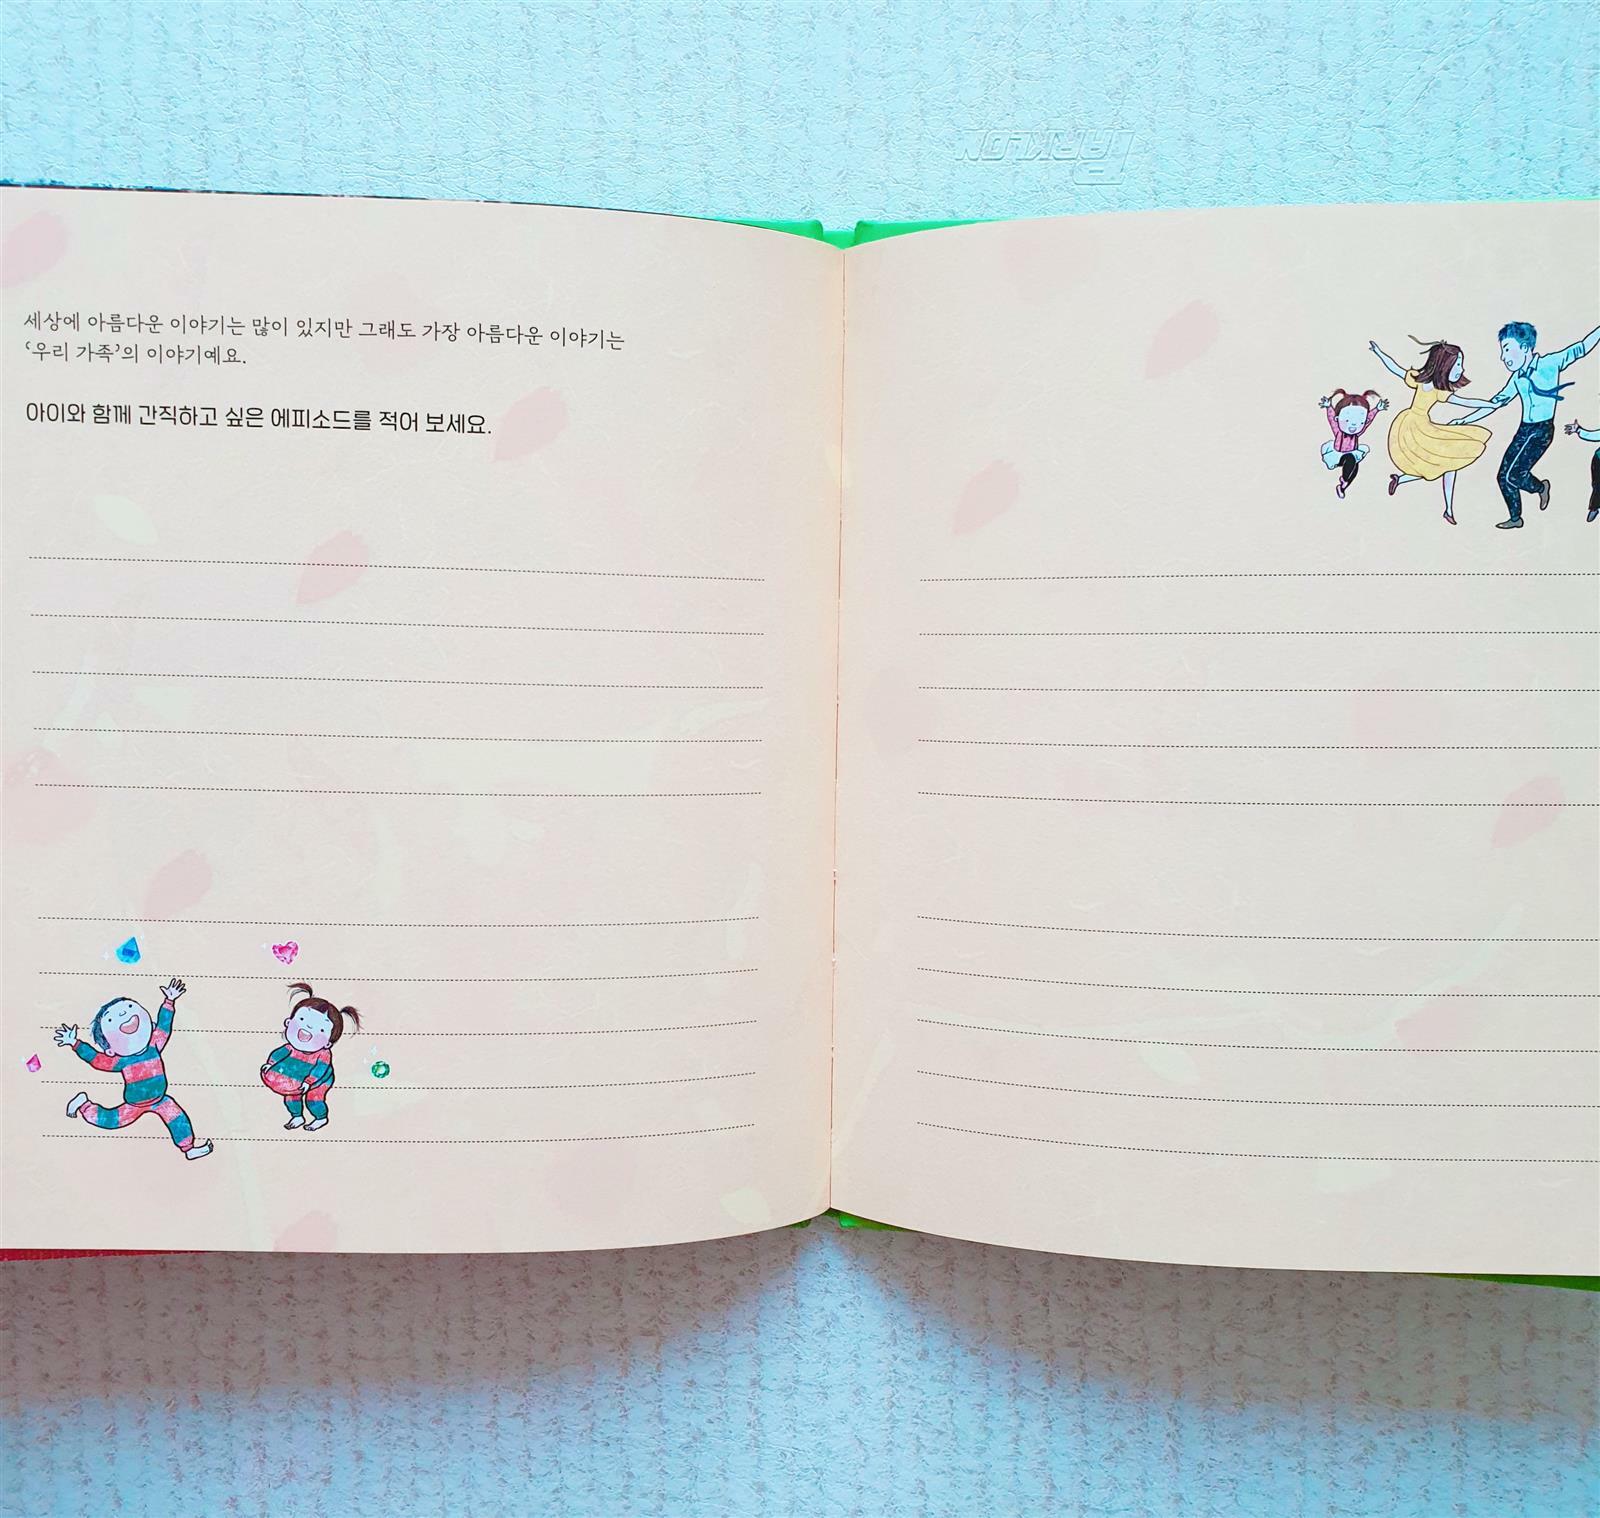 PARKLON
세상에 아름다운 이야기는 많이 있지만 그래도 가장 아름다운 이야기는
‘우리 가족’의 이야기예요.
아이와 함께 간직하고 싶은 에피소드를 적어 보세요.